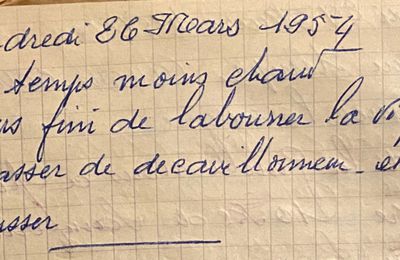 dredi 26 Mars 1954
temps moins chaud
us fini de labourer la vi
asser de decavillonneur - et
usser